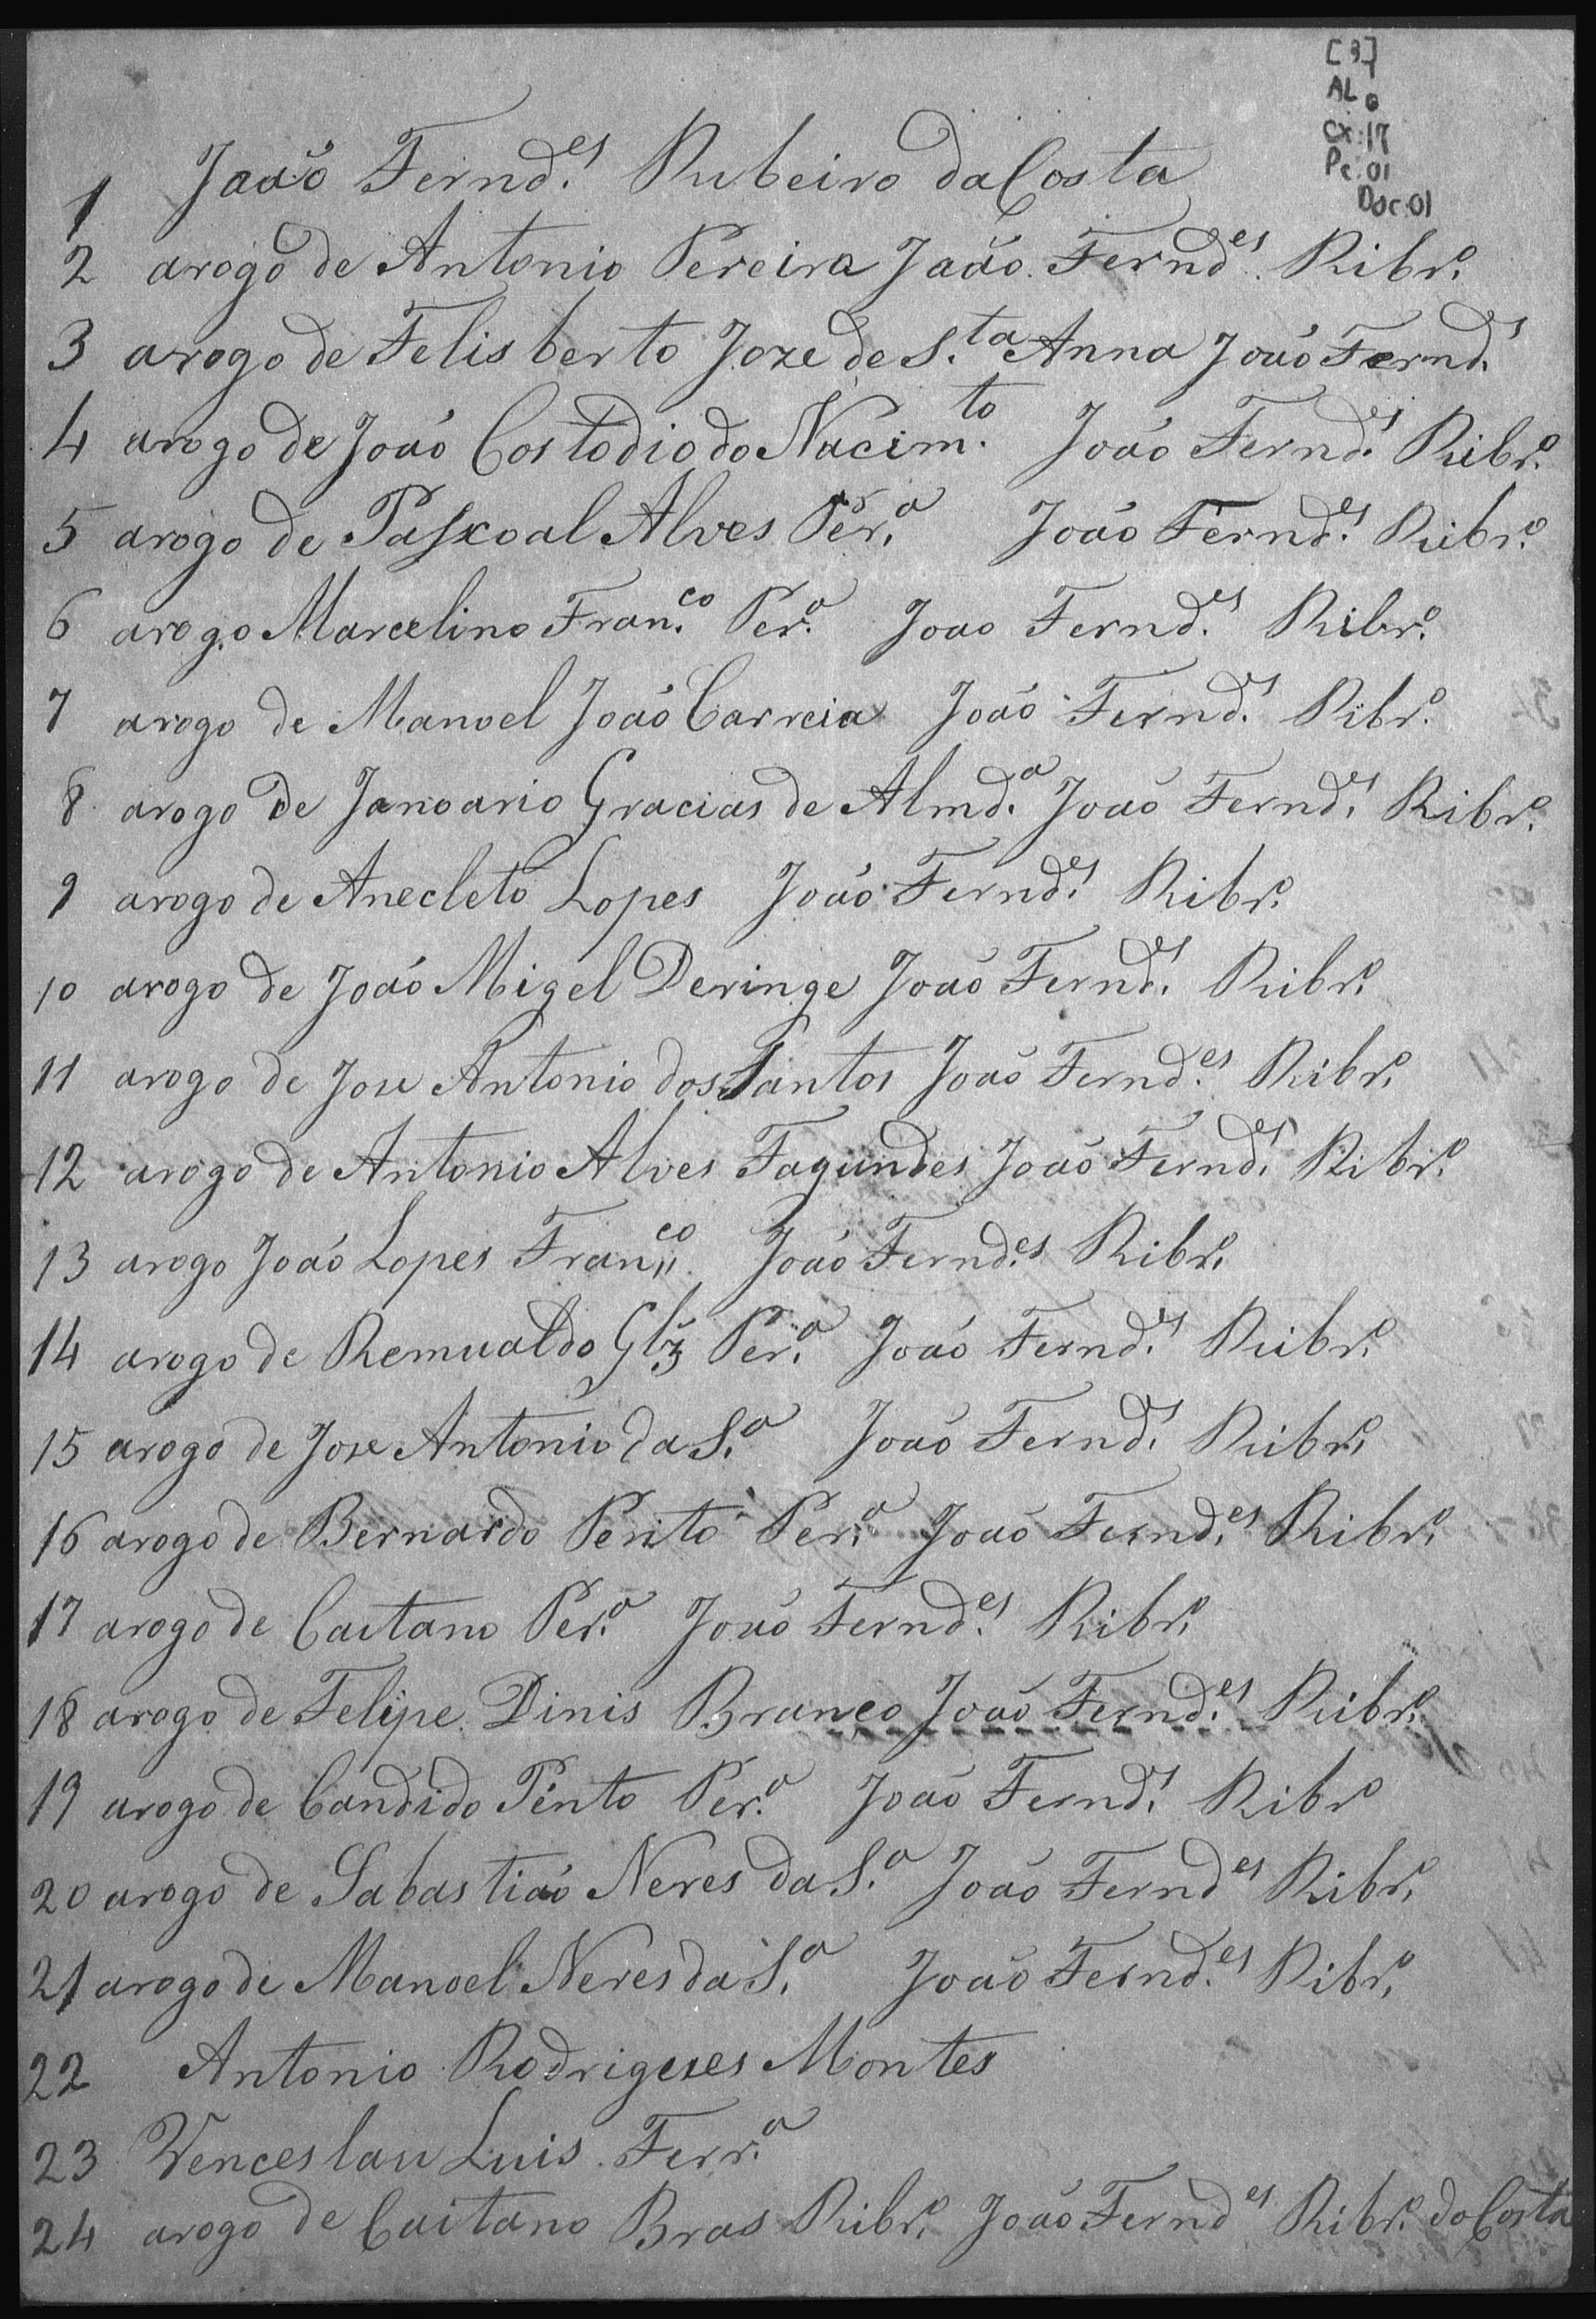 [3]
AL
Cx: 17
Pc: 01
Doc: 01
1 João Fernd.es Ribeiro da Costa
2 arogo de Antonio Pereira João Fernd.es Ribr.o
3 arogo de Felisberto Joze de S.ta Anna João Fernd.es
4 arogo de João Costodio do Nacim.to João Fernd.es Ribr.o
5 arogo de Paskoal Alves Per.a João Fernd.es Ribr.o
6 arogo Marcelino Fran.co Per.a Joao Fernd.es Ribr.o
7 arogo de Manoel João Carreia João Fernd.es Ribr.o
8 arogo de Janoario Gracias de Almd.a João Fernd.es Ribr.o
9 arogo de Anecleto Lopes João Fernd.es Ribr.o
10 arogo de João Migel Deringe João Fernd.es Ribr.o
11 arogo de Joze Antonio dos Santos João Fernd.es Ribr.o
12 arogo de Antonio Alves Fagundes João Fernd.es Ribr.o
13 arogo João Lopes Fran.co João Fernd.es Ribr.o
14 arogo de Remualdo Glz Per.a João Fernd.es Ribr.o
15 arogo de Joze Antonio da S.a João Fernd.es Ribr.o
16 arogo de Bernardo Pento Per.a João Fernd.es Ribr.o
17 arogo de Caitano Per.a João Fernd.es Ribr.o
18 arogo de Felipe Dinis Branco João Fernd.es Ribr.o
19 arogo de Candido Pento Per.a João Fernd.es Ribr.o
20 arogo de Sabastião Neres da S.a João Fernd.es Ribr.o
21 arogo de Manoel Neres da S.a João Fernd.es Ribr.o
22 Antonio Rodrigeues Montes
23 Venceslau Luis Ferr.a
24 arogo de Caitano Bras Ribr.o João Fernd.es Ribr.o da Costa